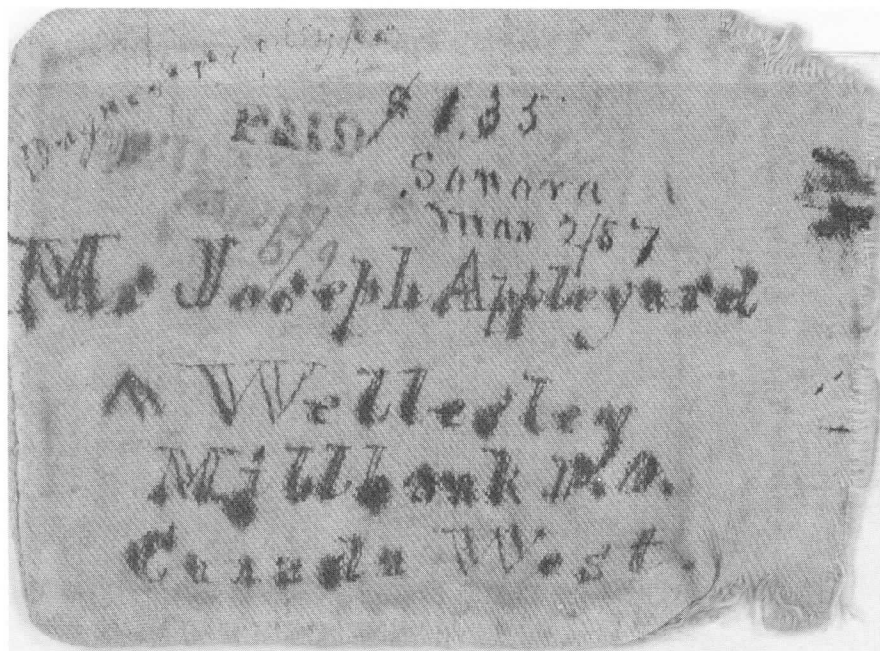 Daguerreotype
PAID $ 1.35
Sonora
Mar 2/57
Mr Joseph Appleyard
Wellesley
Millbank P.O.
Canada West.